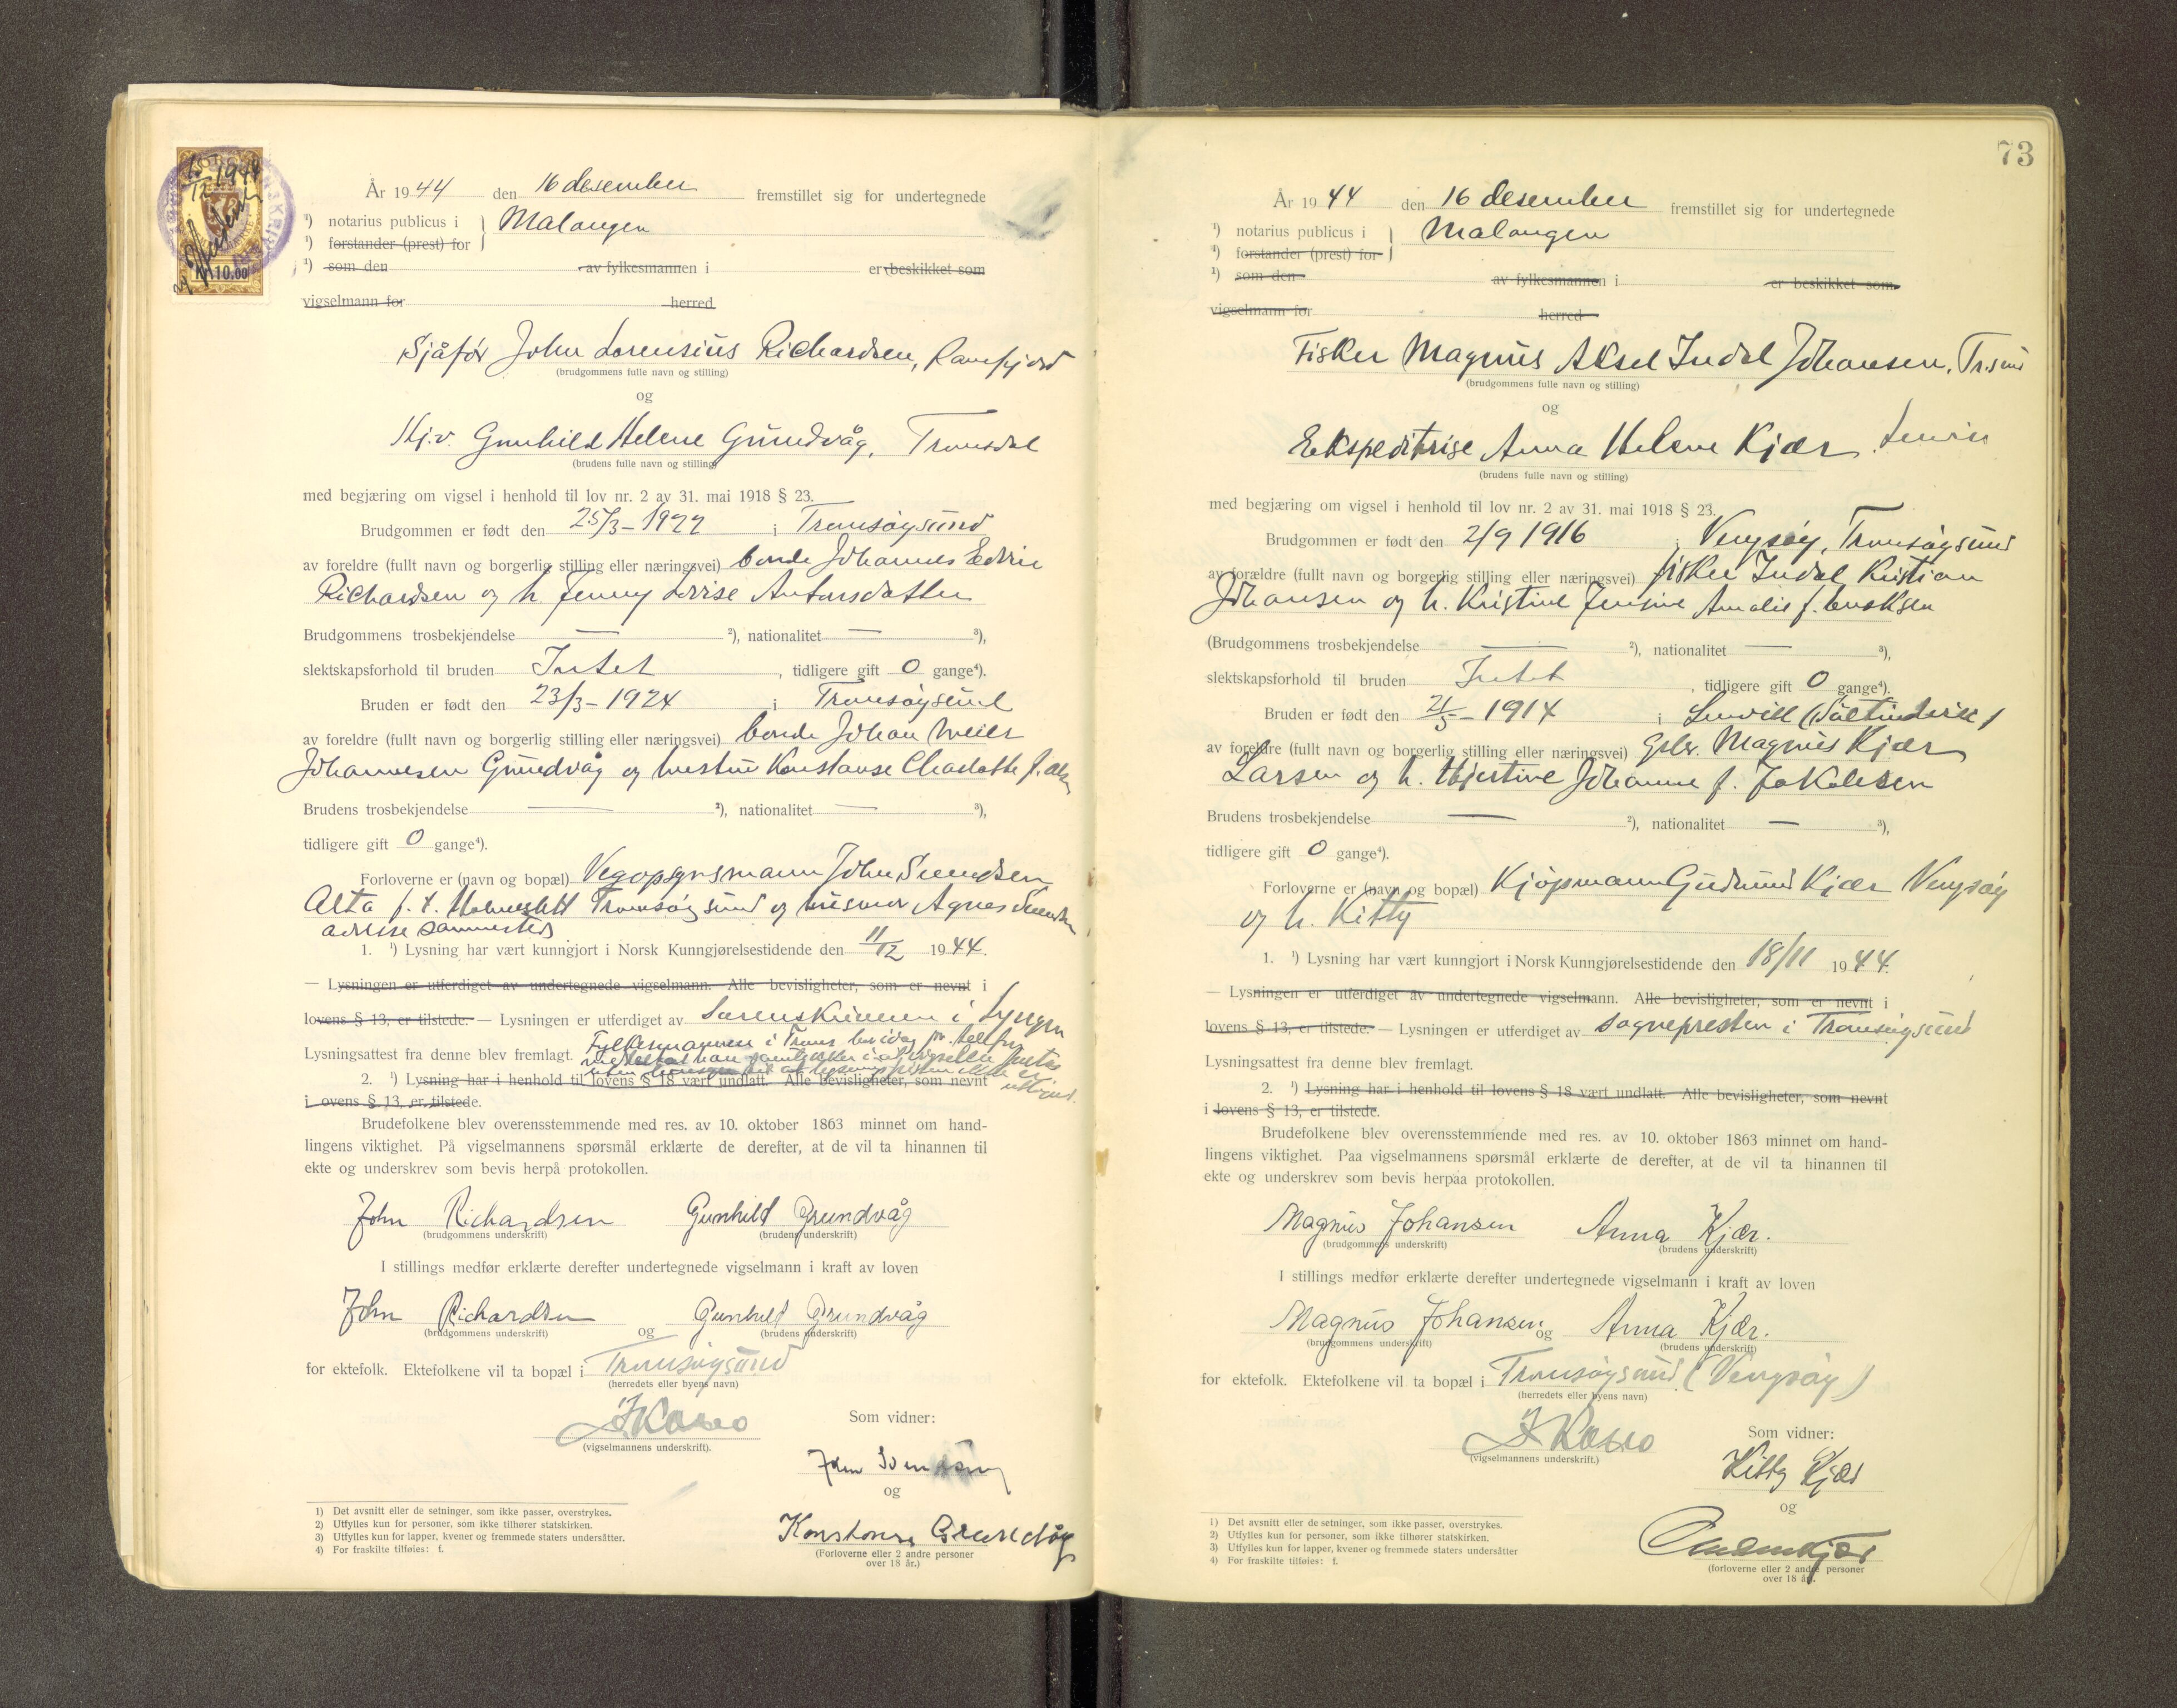 År 1944 den 16 desember fremstillet sig for undertegnede
¹) notarius publicus i } Malangen
¹) forstander (prest) for
¹) som den av fylkesmannen i er beskikket som
vigselmann for herred
Sjåfør John Lorensius Richardsen, Ramfjord
(brudgommens fulle navn og stilling)
og
Hj.v. Gunhild Helene Grundvåg, Tromsdal
(brudens fulle navn og stilling)
med begjæring om vigsel i henhold til lov nr. 2 av 31. mai 1918 § 23.
Brudgommen er født den 25/3-1922 i Tromsøysund
av foreldre (fullt navn og borgerlig stilling eller næringsvei) bonde Johannes Edvin
Richardsen og h. Jenny Lovise Antonsdatter
Brudgommens trosbekjendelse — ²), nationalitet — ³),
slektskapsforhold til bruden Intet, tidligere gift 0 gange⁴).
Bruden er født den 23/3-1924 i Tromsøysund
av foreldre (fullt navn og borgerlig stilling eller næringsvei) bonde Johan
Johannesen Grundvåg og hustru Konstanse Charlotte f.
Brudens trosbekjendelse — ²), nationalitet — ³),
tidligere gift 0 gange⁴).
Forloverne er (navn og bopæl) Vegopsynsmann John Svendsen
Alta f. t. Tromsøysund og husmor Agnes Svendsen
adresse sammesteds
1. ¹) Lysning har vært kunngjort i Norsk Kunngjørelsestidende den 11/12 1944.
— Lysningen er utferdiget av undertegnede vigselmann. Alle bevisligheter, som er nevnt i
lovens § 13, er tilstede. — Lysningen er utferdiget av Sorenskriveren i Lyngen
Fylkesmannen i Troms har idag pr. telefon
Lysningsattest fra denne blev fremlagt. meddelt at han samtykker i at vigselen foretas
2. ¹) Lysning har i henhold til lovens § 18 vært undlatt. Alle bevisligheter, som nevnt
i lovens § 13, er tilstede.
Brudefolkene blev overensstemmende med res. av 10. oktober 1863 minnet om hand-
lingens viktighet. På vigselmannens spørsmål erklærte de derefter, at de vil ta hinannen til
ekte og underskrev som bevis herpå protokollen.
John Richardsen Gunhild Grundvåg
(brudgommens underskrift) (brudens underskrift)
I stillings medfør erklærte derefter undertegnede vigselmann i kraft av loven
John Richardsen og Gunhild Grundvåg
(brudgommens underskrift) (brudens underskrift)
for ektefolk. Ektefolkene vil ta bopæl i Tromsøysund
(herredets eller byens navn)
(vigselmannens underskrift).
Som vidner:
John Svendsen
og
Konstanse Grundvåg
(Forloverne eller 2 andre personer
over 18 år.)
1) Det avsnitt eller de setninger, som ikke passer, overstrykes.
2) Utfylles kun for personer, som ikke tilhører statskirken.
3) Utfylles kun for lapper, kvener og fremmede staters undersåtter.
4) For fraskilte tilføies: f.
15/12 1944
Kr 10,00
73
År 1944 den 16 desember fremstillet sig for undertegnede
¹) notarius publicus i } Malangen
¹) forstander (prest) for
¹) som den av fylkesmannen i er beskikket som
vigselmann for herred
Fisker Magnus Aksel Indal Johansen, Tr.sund
(brudgommens fulle navn og stilling)
og
Ekspeditrise Anna Helene Kjær, Lenvik
(brudens fulle navn og stilling)
med begjæring om vigsel i henhold til lov nr. 2 av 31. mai 1918 § 23.
Brudgommen er født den 2/9 1916 i Vengsøy, Tromsøysund
av forældre (fullt navn og borgerlig stilling eller næringsvei) fisker Indal Kristian
Johansen og h. Kristine Jensine Amalie f.
(Brudgommens trosbekjendelse — ²), nationalitet — ³),
slektskapsforhold til bruden Intet, tidligere gift 0 gange⁴).
Bruden er født den 21/5-1914 i Lenvik
av foreldre (fullt navn og borgerlig stilling eller næringsvei) Gbr. Magnus Kjær
Larsen og h. Hjertine Johanne f. Jakobsen
Brudens trosbekjendelse — ²), nationalitet — ³),
tidligere gift 0 gange⁴).
Forloverne er (navn og bopæl) Kjøpmann Gudmund Kjær Vengsøy
og h. Kitty
1. ¹) Lysning har vært kunngjort i Norsk Kunngjørelsestidende den 18/11 1944.
— Lysningen er utferdiget av undertegnede vigselmann. Alle bevisligheter, som er nevnt i
lovens § 13, er tilstede. — Lysningen er utferdiget av sognepresten i Tromsøysund
Lysningsattest fra denne blev fremlagt.
2. ¹) Lysning har i henhold til lovens § 18 vært undlatt. Alle bevisligheter, som nevnt
i lovens § 13, er tilstede.
Brudefolkene blev overensstemmende med res. av 10. oktober 1863 minnet om hand-
lingens viktighet. Paa vigselmannens spørsmål erklærte de derefter, at de vil ta hinannen til
ekte og underskrev som bevis herpaa protokollen.
Magnus Johansen Anna Kjær.
(brudgommens underskrift) (brudens underskrift)
I stillings medfør erklærte derefter undertegnede vigselmann i kraft av loven
Magnus Johansen og Anna Kjær.
(brudgommens underskrift) (brudens underskrift)
for ektefolk. Ektefolkene vil ta bopæl i Tromsøysund (Vengsøy)
(herredets eller byens navn)
(vigselmannens underskrift.)
Som vidner:
Kitty Kjær
og
(forloverne eller 2 andre personer
over 18 år.
1) Det avsnitt eller de setninger, som ikke passer, overstrykes.
2) Utfylles kun for personer, som ikke tilhører statskirken.
3) Utfylles kun for lapper, kvener og fremmede staters undersåtter
4) For fraskilte tilføies: f.